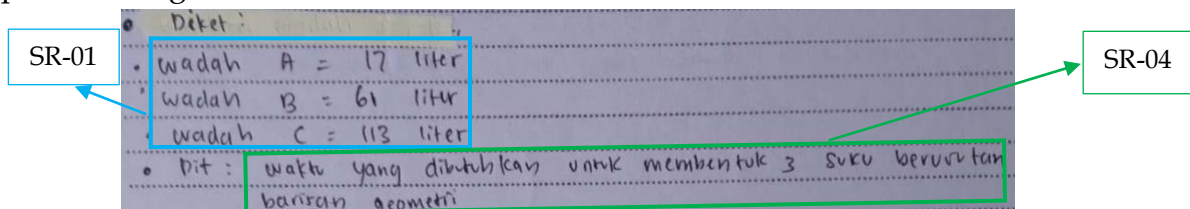 • Diket :
SR-01
SR-04
• wadah A = 17 liter
• wadah B = 61 liter
• wadah C = 113 liter
• Dit : waktu yang dibutuhkan untuk membentuk 3 suku berurutan
barisan geometri